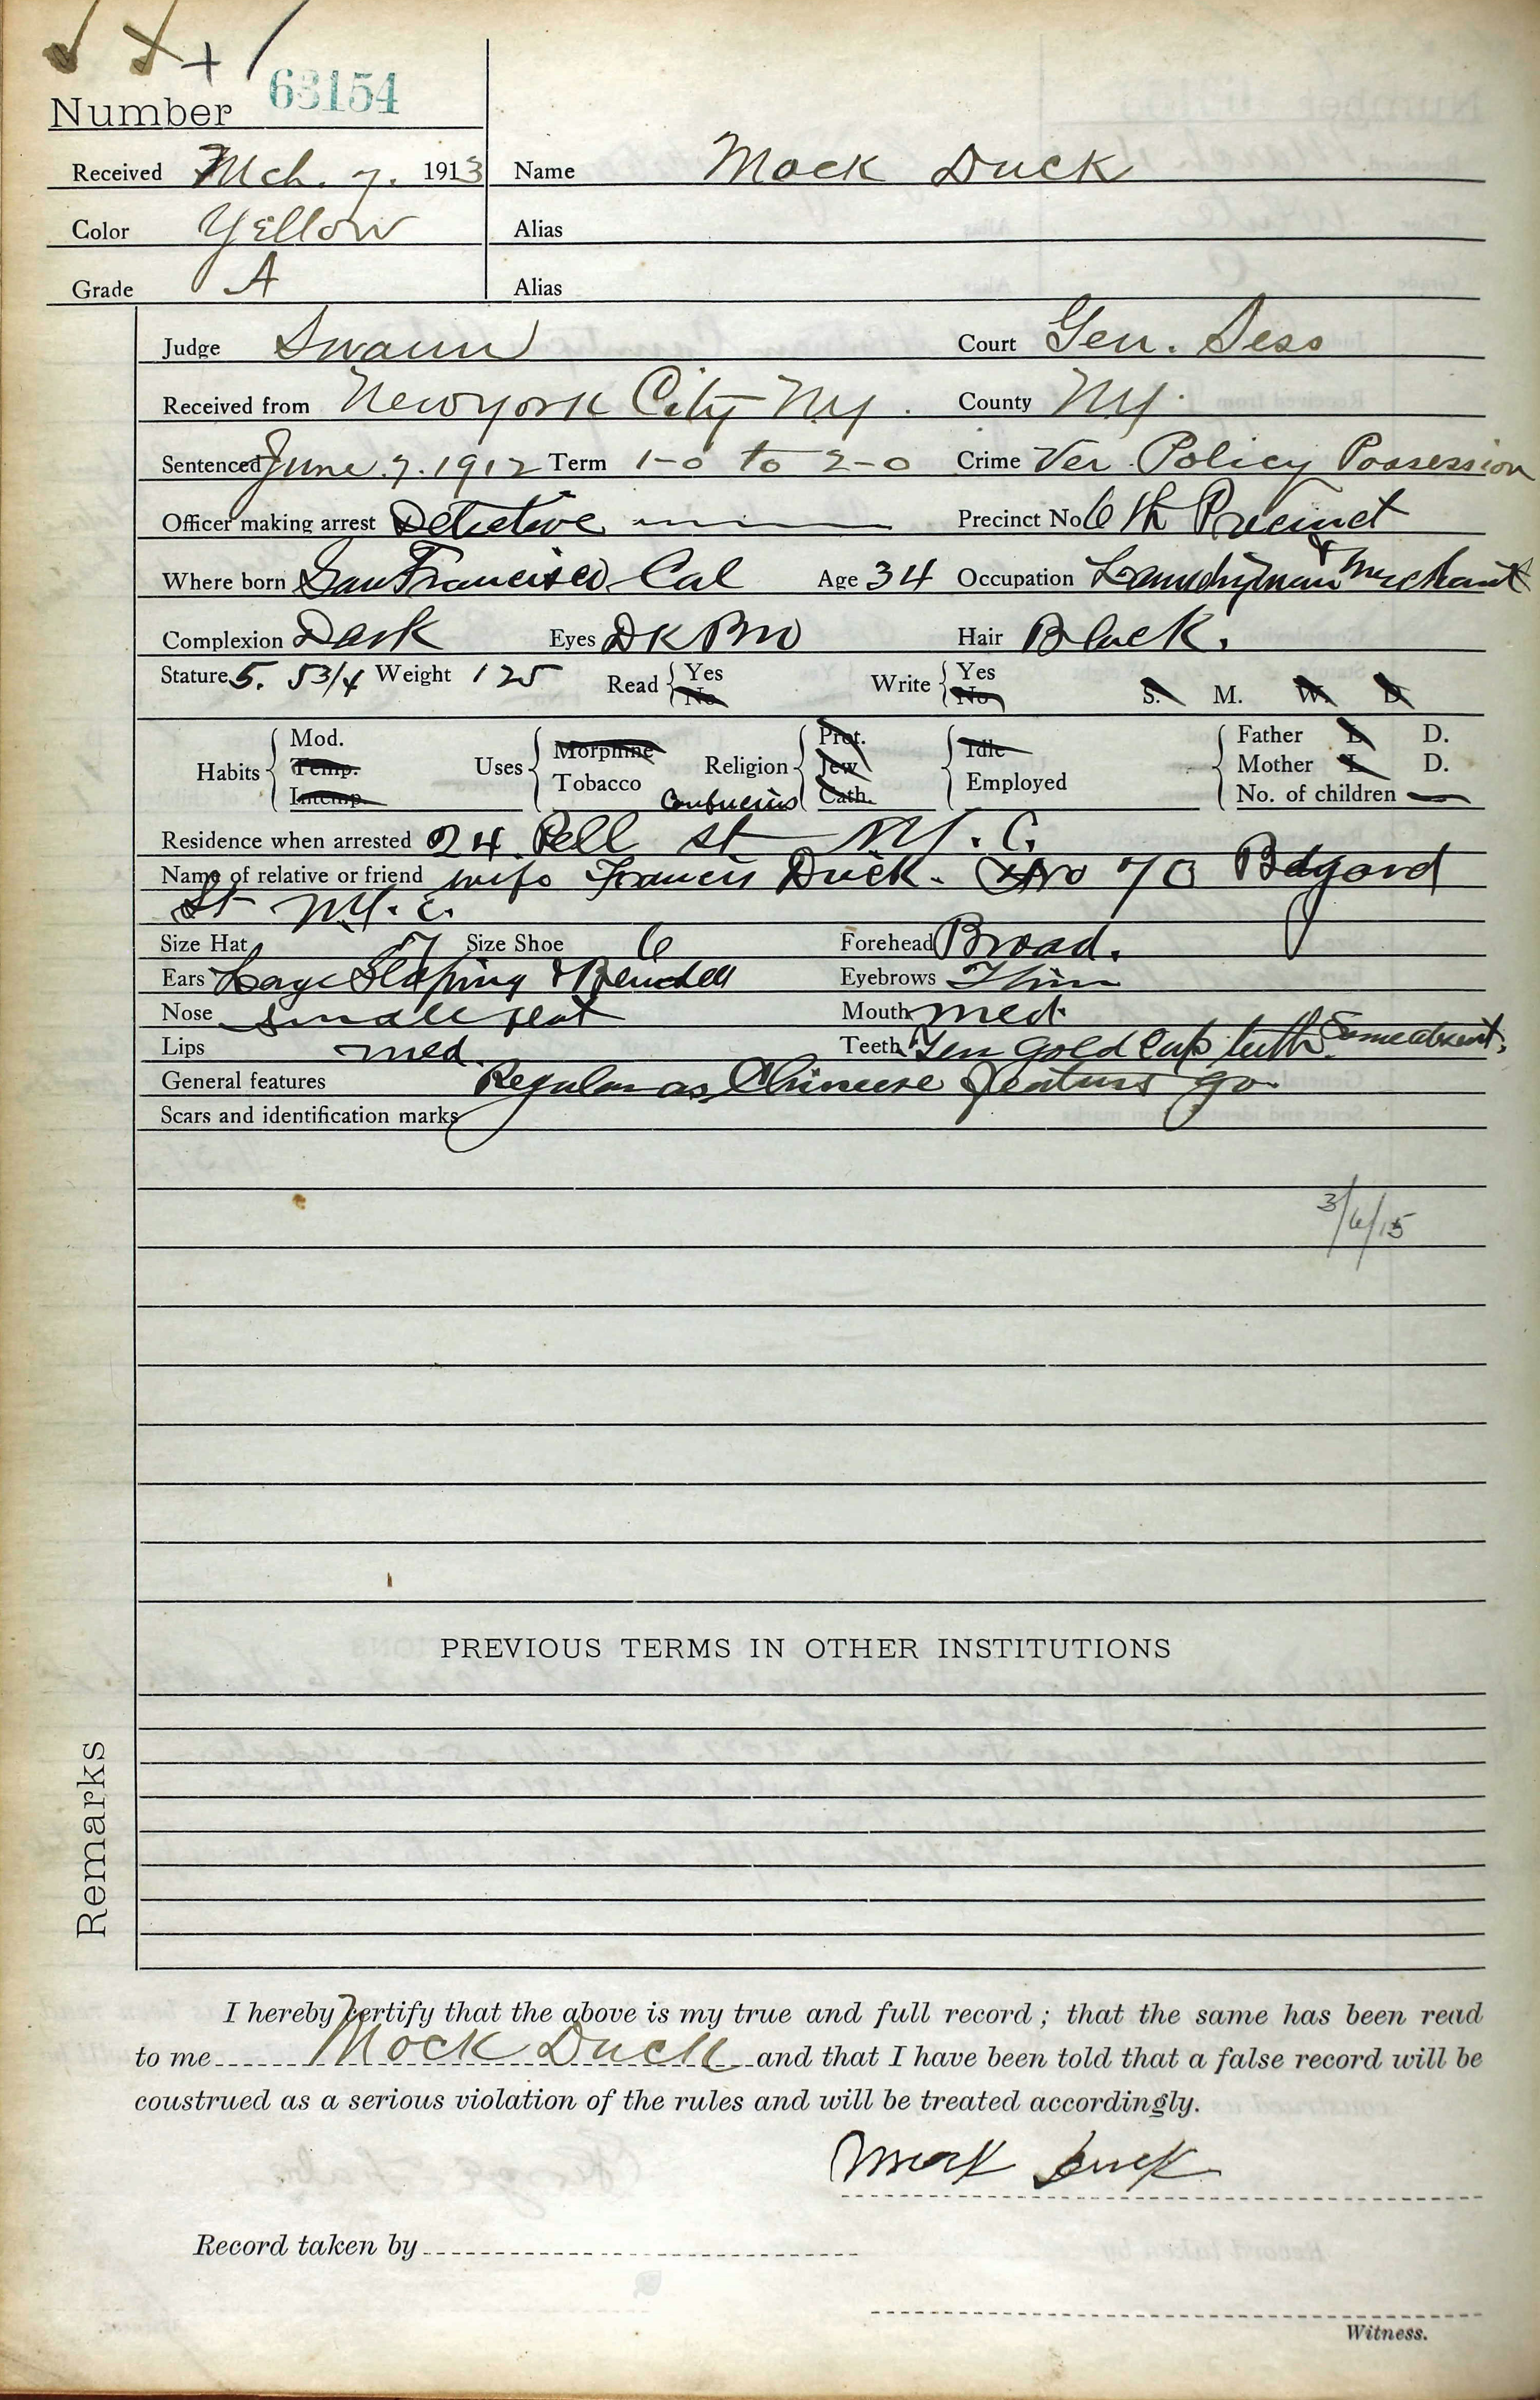 Number 63154
Received Mch. 7. 1913 Name Mock Duck
Color Yellow Alias
Grade A Alias
Judge Swann Court Gen. Sess
Received from New York City N.Y. County N.Y.
Sentenced June. 7. 1912 Term 1-0 to 2-0 Crime Ver. Policy Possession
Officer making arrest Detective Precinct No 6th Precinct
Where born San Francisco Cal Age 34 Occupation Laundryman & Merchant
Complexion Dark Eyes DK Brw Hair Black.
Stature 5. 5 3/4 Weight 125 Read { Yes No Write { Yes No S. M. W. D
Habits { Mod. Temp. Intemp. Uses { Morphine Tobacco Religion { Prot. Jew Cath. Confucius { Idle Employed { Father L D. Mother L D. No. of children —
Residence when arrested 24. Pell St N.Y.C.
Name of relative or friend wife Francis Duck. No 70 Bayard
St N.Y.C.
Size Hat 7 Size Shoe 6 Forehead Broad.
Ears Large Sloping & Eyebrows Thin
Nose small flat Mouth Med.
Lips med. Teeth Ten gold cap teeth Some absent.
General features Regular as Chinese features go
Scars and identification marks
3/6/15
PREVIOUS TERMS IN OTHER INSTITUTIONS
Remarks
I hereby certify that the above is my true and full record; that the same has been read
to me Mock Duck and that I have been told that a false record will be
coustrued as a serious violation of the rules and will be treated accordingly.
Mock Duck
Record taken by
Witness.